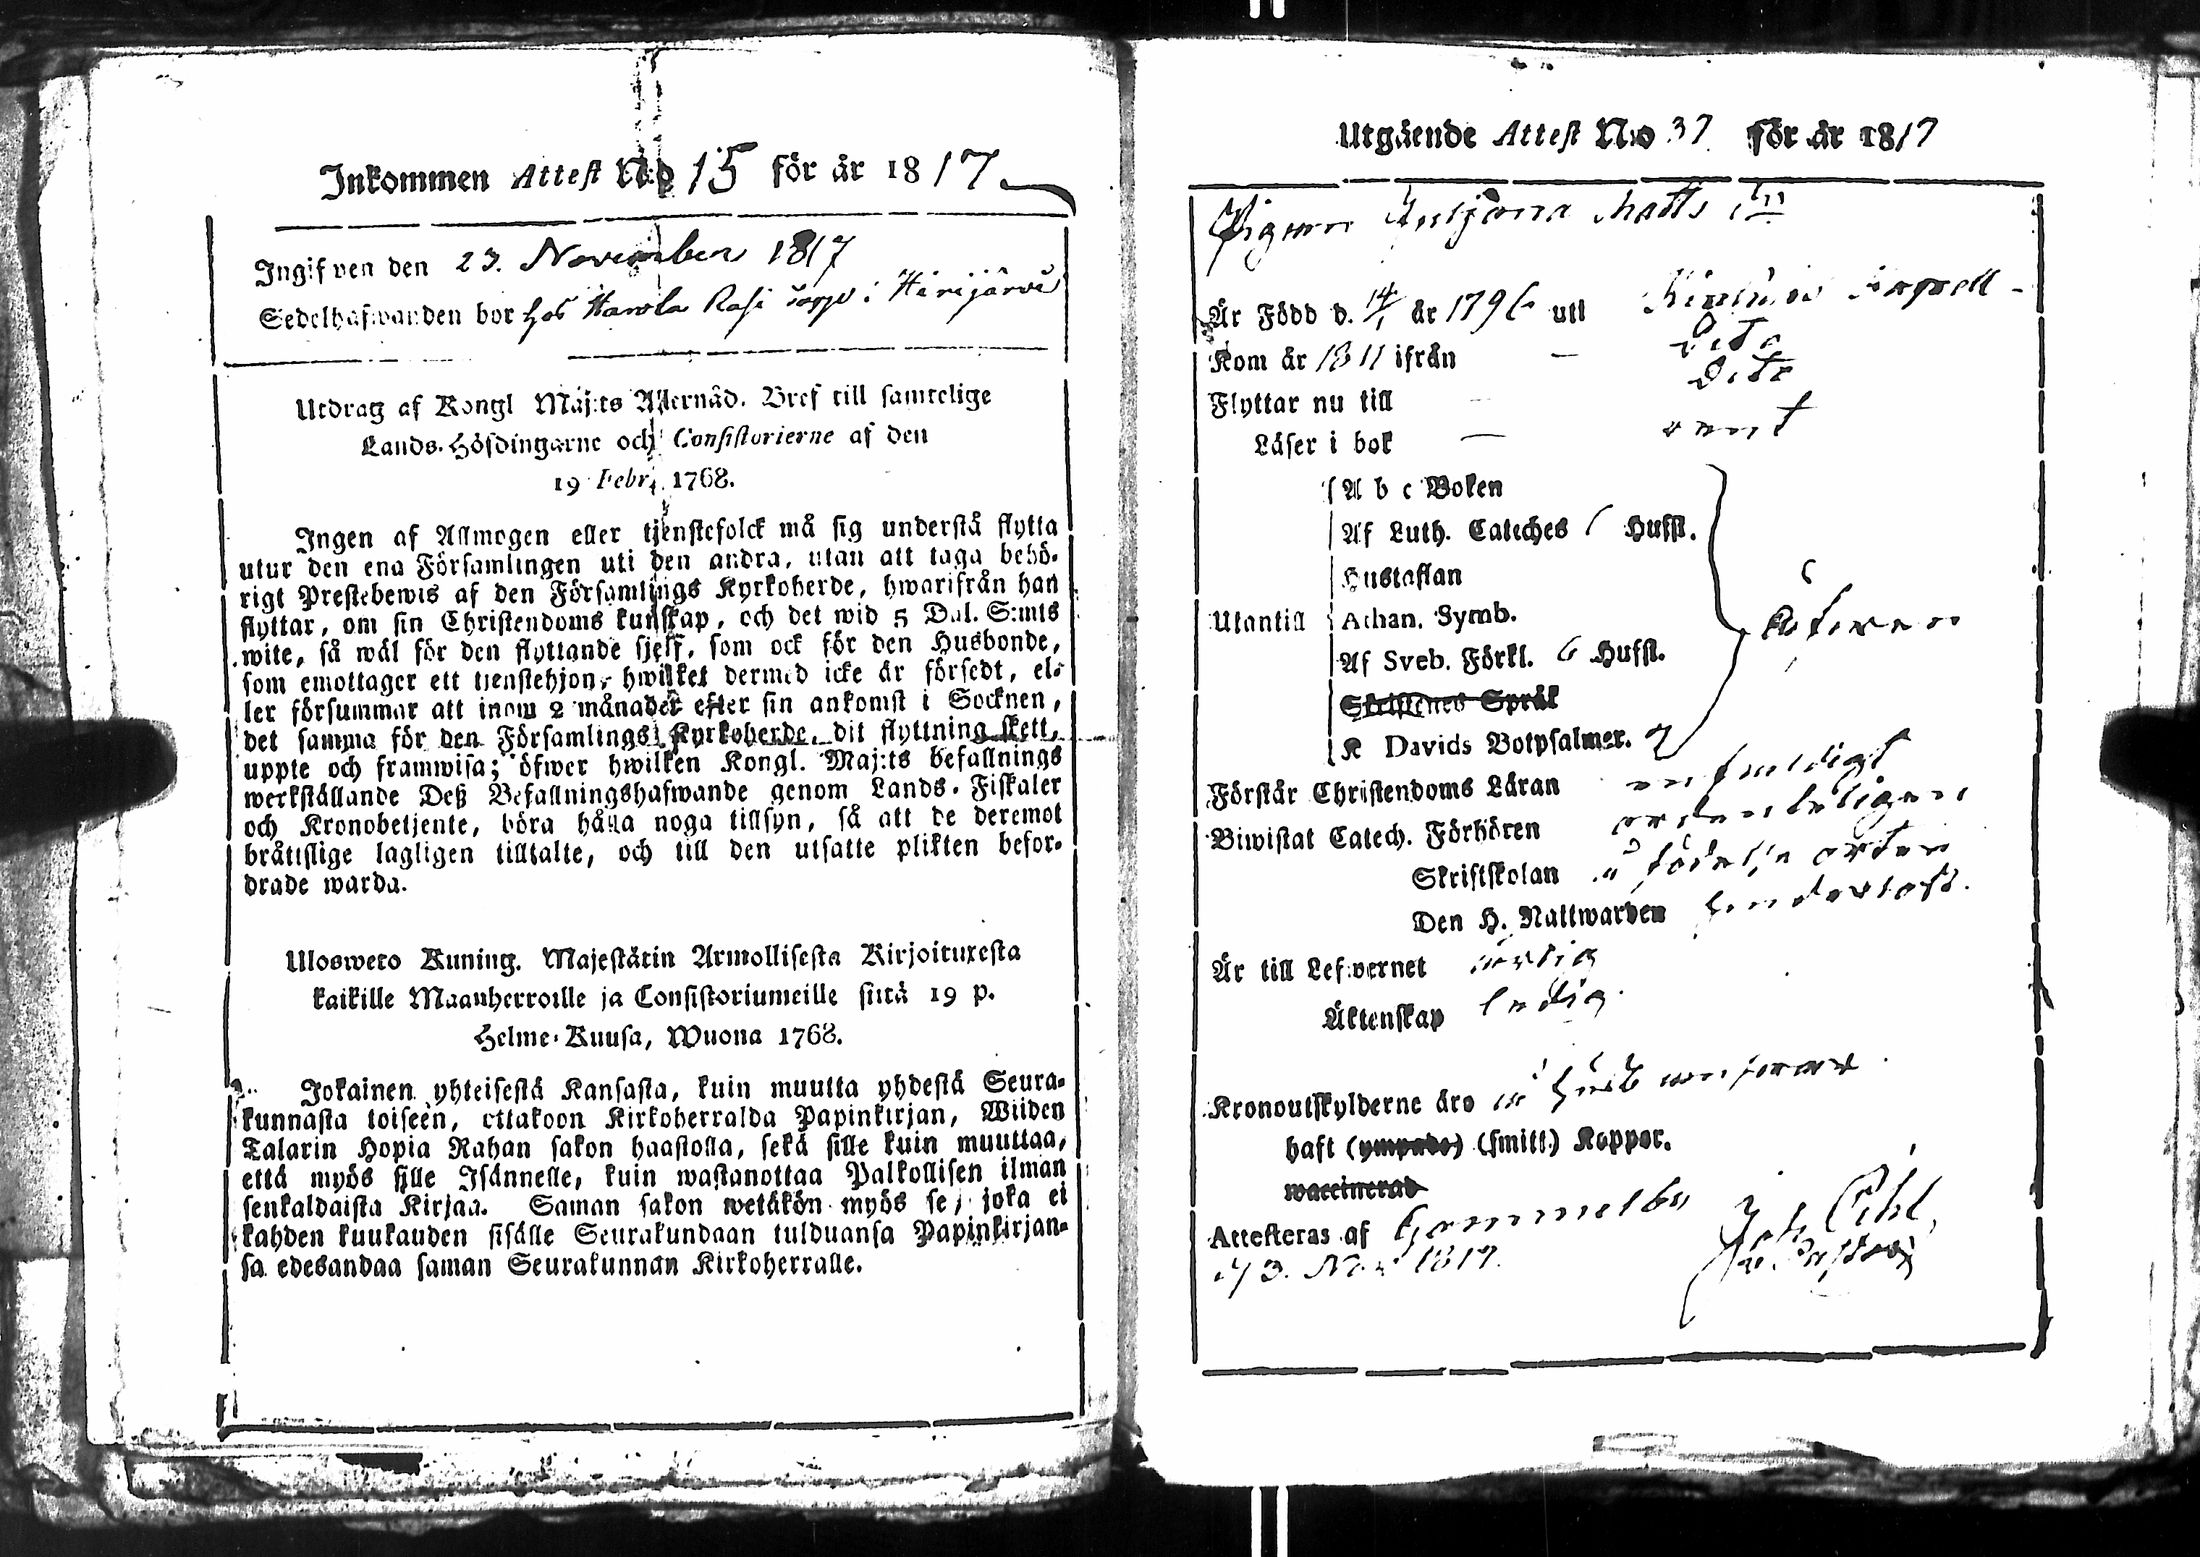 Inkommen Attest No 15 för år 1817
Ingifven den 23. November 1817
Sedelhafwanden bor hos Rasi i Hirijärvi
Utdrag af Kongl Maj:ts Allernåd. Bref till samtelige
Lands-Höfdingarne och Consistorierne af den
19 Febr. 1768.
Ingen af Allmogen eller tjenstefolck må sig understå flytta
utur den ena Församlingen uti den andra, utan att taga behö-
rigt Prestebewis af den Församlings Kyrkoherde, hwarifrån han
flyttar, om sin Christendoms kunskap, och det wid 5 Dal. S:mts
wite, så wäl för den flyttande sjelf, som ock för den Husbonde,
som emottager ett tjenstehjon, hwilket dermed icke är försedt, el-
ler försummar att inom 2 månader efter sin ankomst i Socknen,
det samma för den Församlings Kyrkoherde, dit flyttning skett,
uppte och framwisa; öfwer hwilken Kongl. Maj:ts befallnings
werkställande Deß Befallningshafwande genom Lands-Fiskaler
och Kronobetjente, böra hålla noga tillsyn, så att de deremot
bråttslige lagligen tilltalte, och till den utsatte plikten befor-
drade warda.
Ulosweto Kuning. Majestätin Armollisesta Kirjoituxesta
kaikille Maanherroille ja Consistoriumeille siitä 19 p.
Helme-Kuusa, Wuona 1768.
Jokainen yhteisestä Kansasta, kuin muutta yhdestä Seura-
kunnasta toiseen, ottakoon Kirkoherralda Papinkirjan, Wiiden
Talarin Hopia Rahan sakon haastolla, sekä sille kuin muuttaa,
että myös sille Isännelle, kuin wastanottaa Palkollisen ilman
senkaldaista Kirjaa. Saman sakon wetäkön myös se, joka ei
kahden kuukauden sisälle Seurakundaan tulduansa Papinkirjan-
sa edesandaa saman Seurakunnan Kirkoherralle.
Utgående Attest No 37 för år 1817
Pigan Matts
Är Född d. 14/1 år 1796 uti Kapell
Kom år 1811 ifrån Dito
Flyttar nu till Dito
Läser i bok rent
A b c Boken
Af Luth. Cateches 6 Hufst.
Hustaflan
Utantill Athan. Symb. Äfwen
Af Sveb. Förkl. 6 Hufst.
Skriftenes Språk
K Davids Botpsalmer. 7
Förstår Christendoms Läran enfaldigt
Biwistat Catech. Förhören ordenteligen
Skriftskolan å födelse orten
Den H. Nattwarden
Är till Lefwernet ärlig
Äktenskap ledig
Kronoutskylderne äro
haft (ympade) (smitt.) Koppor.
waccinerad
Attesteras af Gammelby Joh.
d 3. Nov 1817.